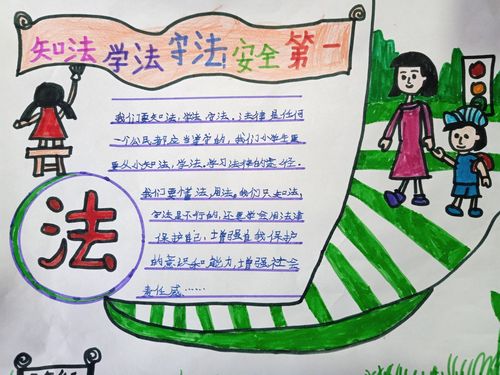 知法学法守法安全第一
我们要知法，学法，守法，法律是任何
一个公民都应当遵守的，我们小学生更
要从小知法，学法，学习法律的途径。
我们要懂法，用法。我们只知法，
守法是不行的，还要学会用法律
保护自己，增强自我保护
的意识和能力，增强社会
责任感……
法